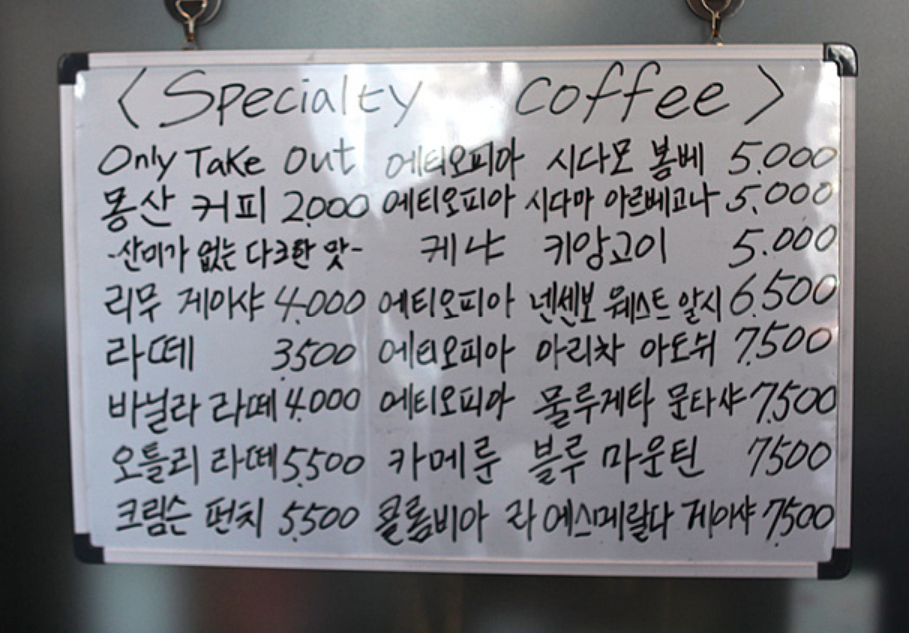 <Specialty Coffee>
Only Take Out
몽산 커피 2.000
-산미가 없는 다크한 맛-
리무 게이샤 4.000
라떼 3.500
바닐라 라떼 4.000
오틀리 라떼 5,500
크림슨 펀치 5,500
에티오피아 시다모 봄베 5.000
에티오피아 시다마 아르베고나 5.000
케냐 키앙고이 5.000
에티오피아 넨센보 웨스트 알시 6.500
에티오피아 아리차 아도쉬 7,500
에티오피아 물루게타 문타샤 7,500
카메룬 블루 마운틴 7500
콜롬비아 라 에스메랄다 게이샤 7,500